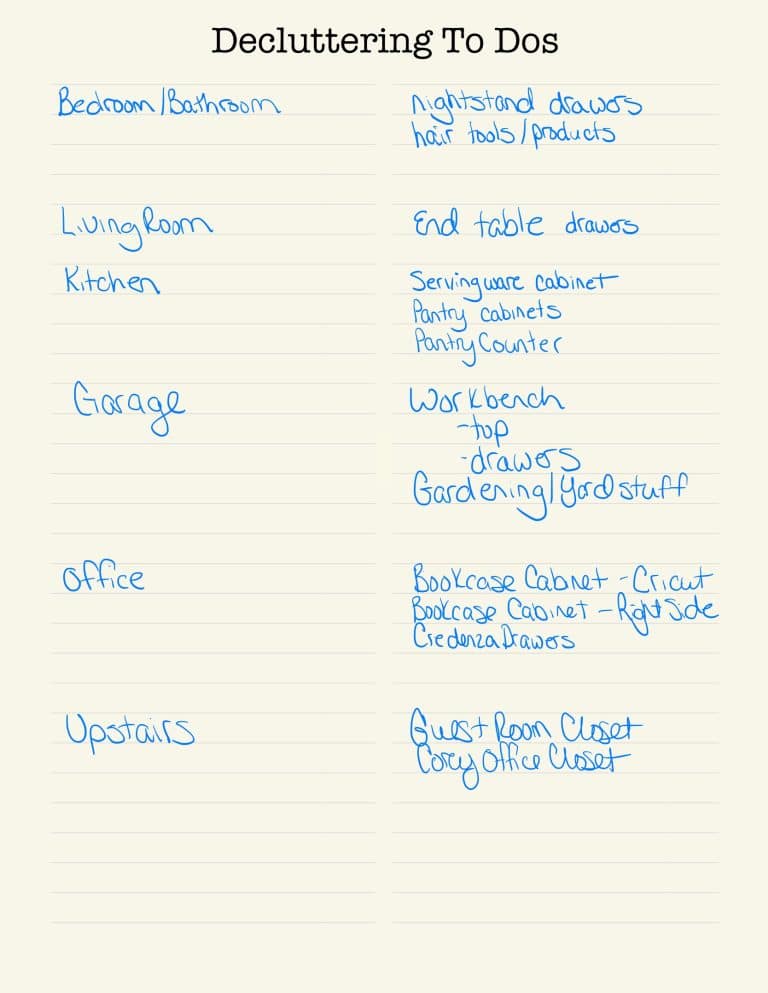 Decluttering To Dos
Bedroom/Bathroom nightstand drawers
hair tools/products
Living Room End table drawers
Kitchen Servingware cabinet
Pantry cabinets
Pantry Counter
Garage Workbench
-top
-drawers
Gardening/Yard stuff
Office Bookcase Cabnet - Cricut
Bookcase Cabinet - Right Side
Credenza Drawers
Upstairs Guest Room Closet
Cory Office Closet